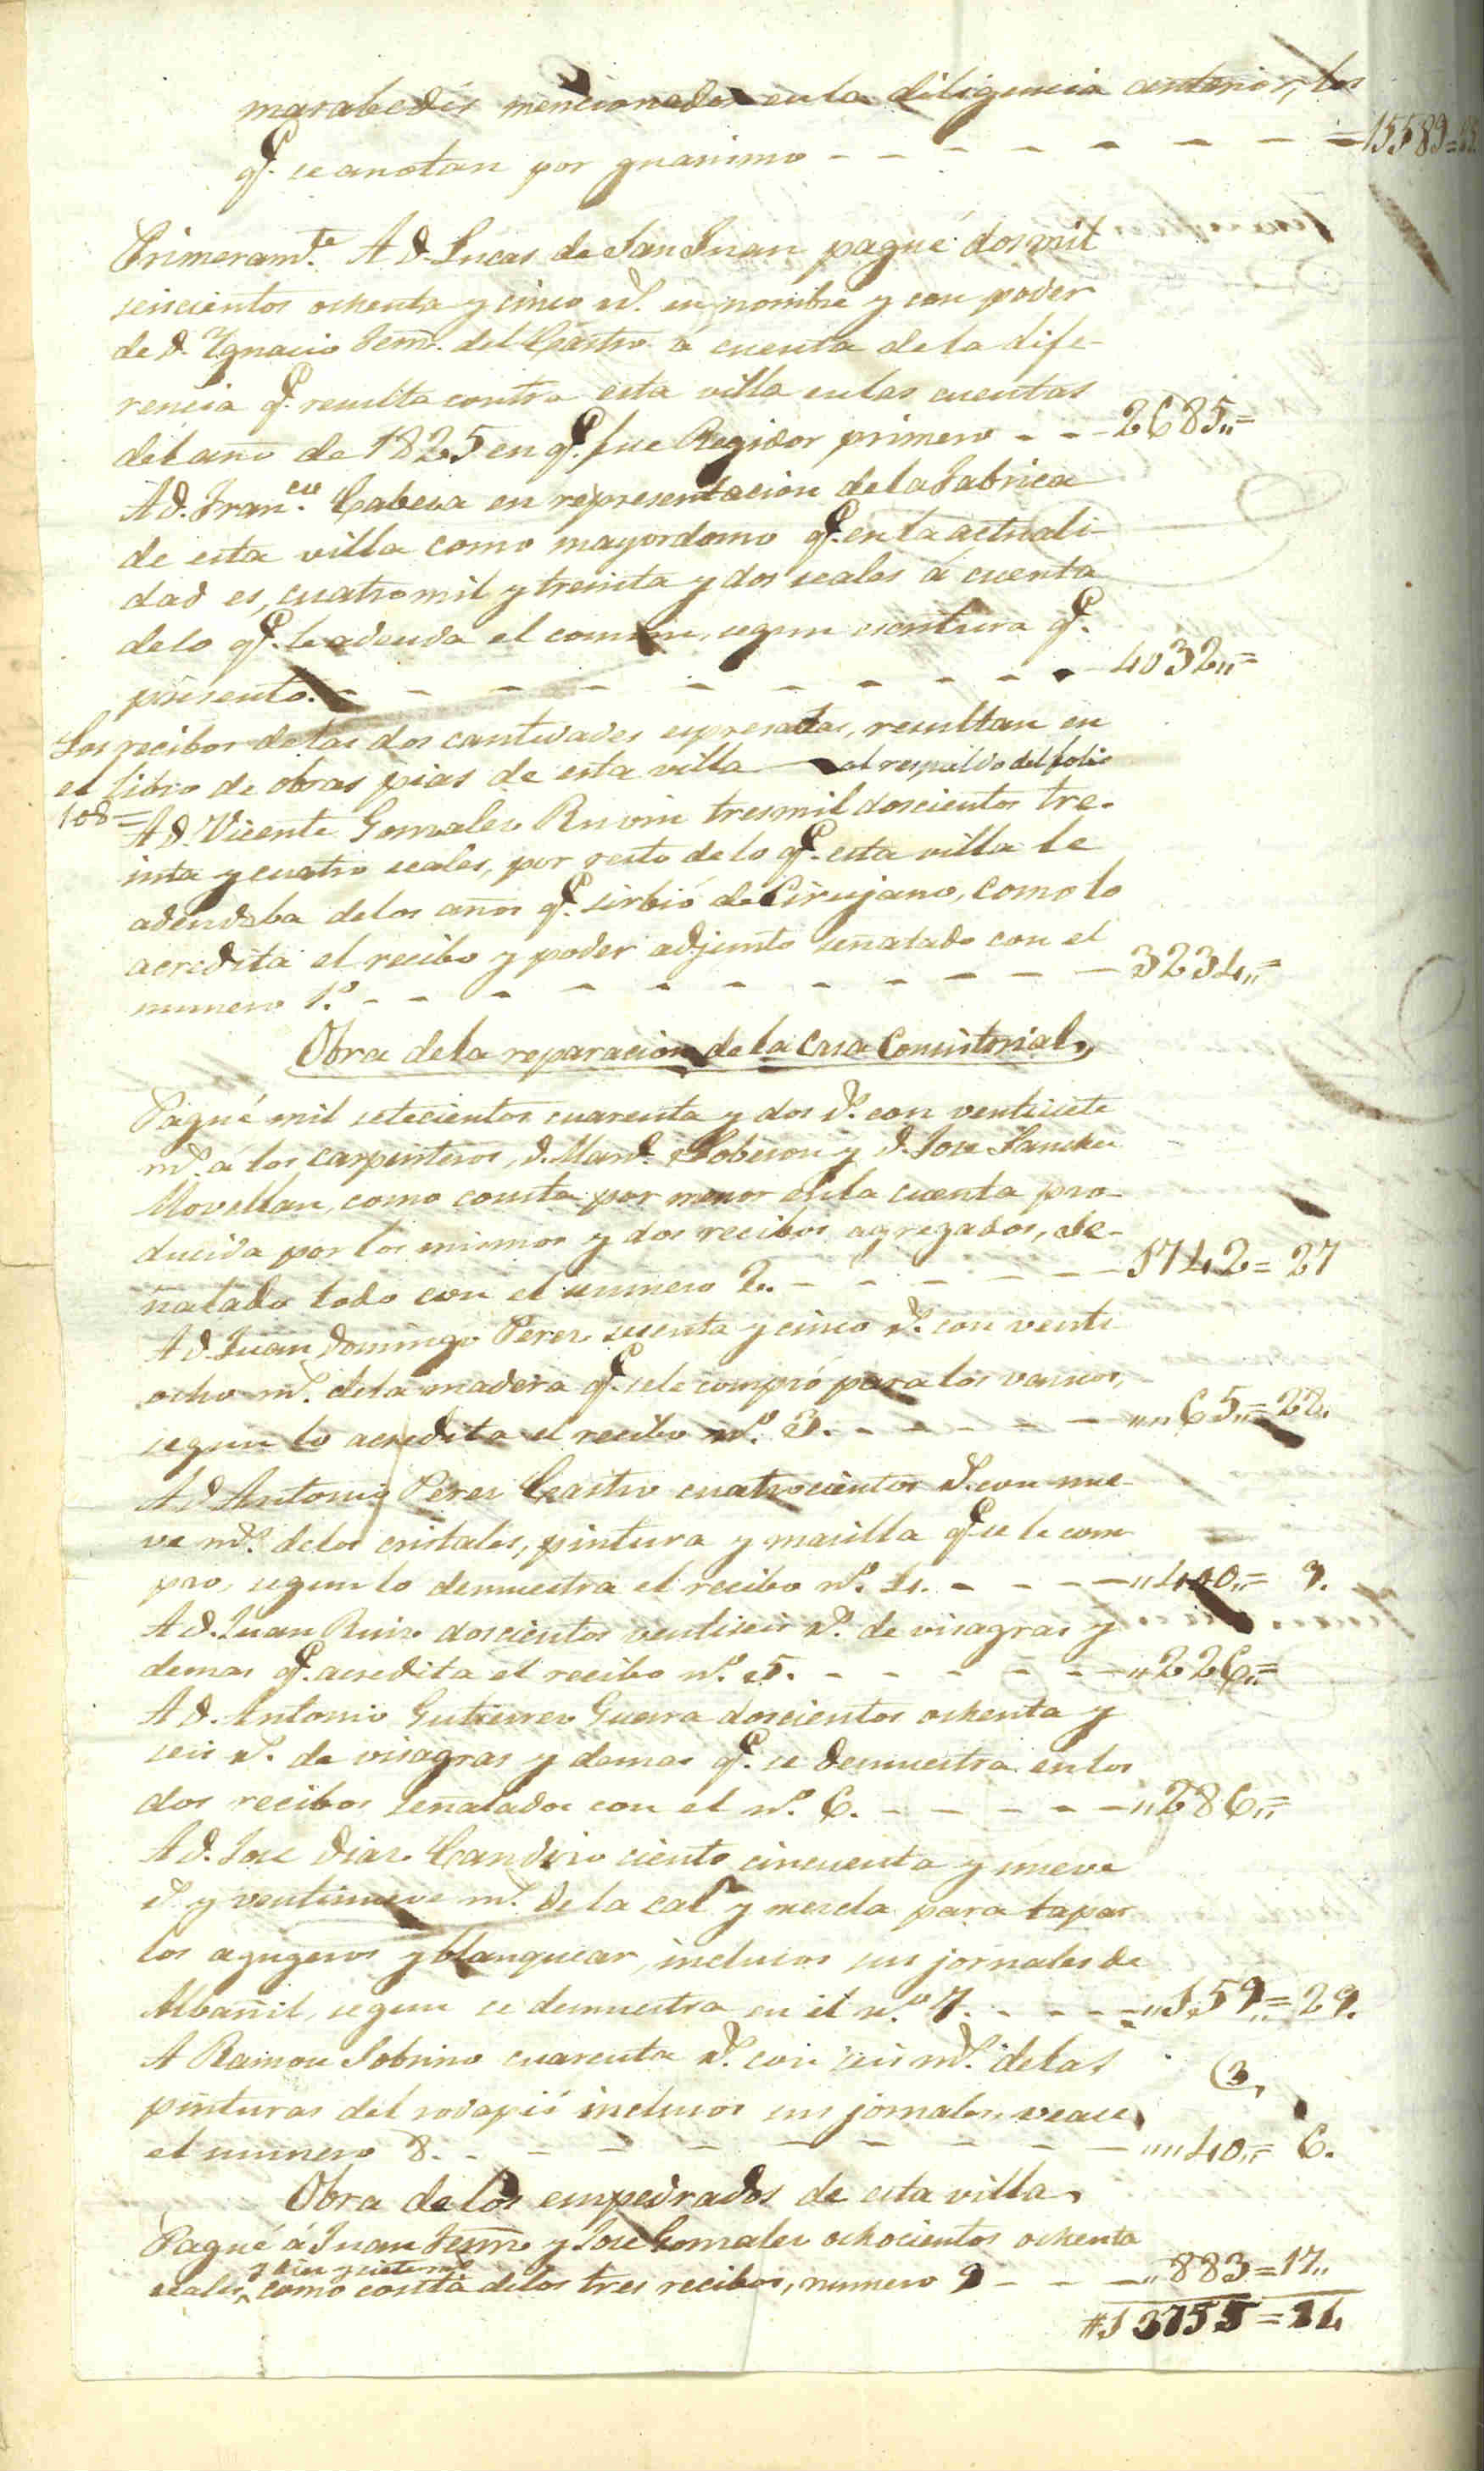 marabedís mencionados en la diligencia anterior, los
qe. se anotan por guarismo - - - - - - - =15589=
Primeramte. A D. Lucas de San Juan pagué dos mil
seiscientos ochenta y cinco rs. en nombre y con poder
de D. Ygnacio Fernz. del Castro á cuenta de la dife-
rencia qe. resulta contra esta villa en las cuentas
del año de 1825 en qe. fue Regidor primero - - - 2685,,=
A D. Franco. Cabeza en representacion de la Fabrica
de esta villa como mayordomo qe. en la actuali-
dad es, cuatro mil y treinta y dos reales á cuenta
de lo qe. le adeuda el comun, segun escritura qe.
presento. - - - - - - - - - 4032,,=
Los recibos de las dos cantidades espresadas, resultan en
el libro de obras pias de esta villa al respaldo del folio
108=
A D. Vicente Gonzalez Ruvin tres mil doscientos tre-
inta y cuatro reales, por resto de lo qe. esta villa le
adeudaba de los años qe. sirbió de Cirujano, como lo
acredita el recibo y poder adjunto señalado con el
numero 1.º - - - - - - - - - 3234,,=
Obra de la reparacion de la Casa Consistorial,,
Pagué mil setecientos cuarenta y dos rs. con ventisiete
ms. á los carpinteros, D. Manl. Soberon y D. Jose Sanchez
Movellan, como consta por menor en la cuenta pro-
ducida por los mismos y dos recibos agregados, se-
ñalado todo con el numero 2. - - - - - - 1742=27
A D. Juan Domingo Perez sesenta y cinco rs. con venti
ocho ms. de la madera qe. se le compró para los vancos,
segun lo acredita el recibo nº. 3. - - - - - ,,,,65,,=28.
A D. Antonio Perez Castro cuatrocientos rs. con nue-
ve ms. de los cristales, pintura y masilla qe. se le com-
pro, segun lo demuestra el recibo nº. 4. - - - - ,,400,,= 9.
A D. Juan Ruiz doscientos ventiseis rs. de visagras y
demas qe. acredita el recibo nº. 5. - - - - - - ,,226,,=
A D. Antonio Gutierrez Guerra doscientos ochenta y
seis rs. de visagras y demas qe. se demuestra en los
dos recibos señalados con el nº. 6. - - - - - ,,286,,=
A D. Jose Diaz Candizo ciento cincuenta y nueve
rs. y ventinueve ms. de la cal y mezcla para tapar
los agugeros y blanquear, inclusos sus jornales de
Albañil, segun se demuestra en el nº. 7. - - - - ,,159,,=29.
A Ramon Sobrino cuarenta rs. con seis ms. de las
pinturas del rodapié inclusos sus jornales, vease
el numero 8. - - - - - - - - ,,,,40,,= 6.
Obra de los empedrados de esta villa,
Pagué á Juan Fernz. y Jose Gonzalez ochocientos ochenta
y diez y siete ms.
reales, como consta de los tres recibos, numero 9 - - - ,,883=17,,
#13755=14